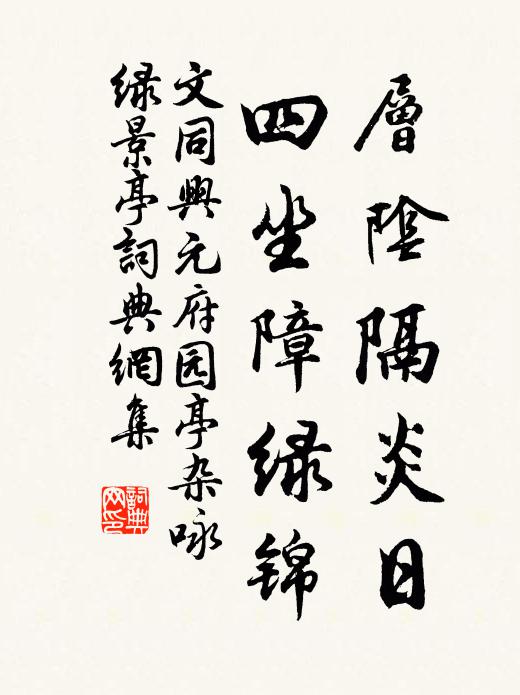 層陰隔炎日
四坐障绿錦
文同興元府园亭杂咏
绿景亭詞典網集
詞典
网印